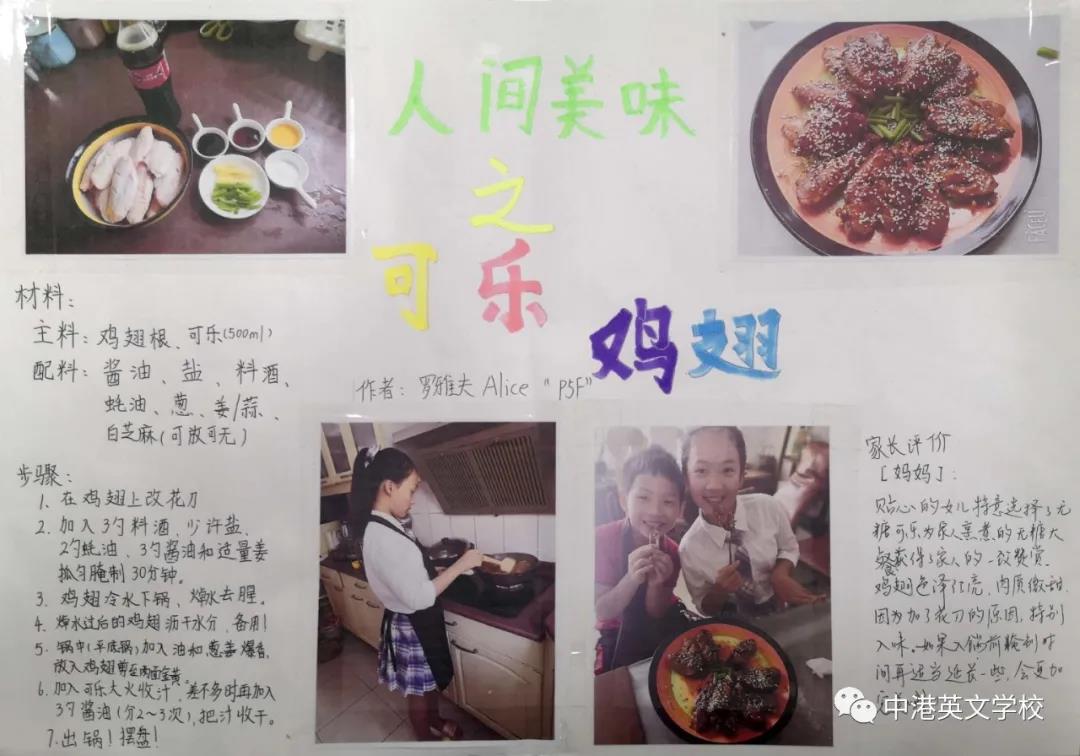 人间美味
之
可乐
鸡翅
作者：罗雅夫 Alice “P5F”
材料：
主料：鸡翅根、可乐(500ml)
配料：酱油、盐、料酒、
蚝油、葱、姜/蒜、
白芝麻(可放可无)
步骤：
1. 在鸡翅上改花刀
2. 加入3勺料酒，少许盐，
2勺蚝油、3勺酱油和适量姜
抓匀腌制30分钟。
3. 鸡翅冷水下锅，焯水去腥。
4. 焯水过后的鸡翅沥干水分，备用
5. 锅中(平底锅)加入油和葱姜爆香，
放入鸡翅煎至两面金黄。
6. 加入可乐大火收汁，差不多时再加入
3勺酱油(分2~3次)，把汁收干。
7. 出锅！摆盘！
家长评价
[妈妈]：
贴心的女儿特意选择了无
糖可乐为家人烹煮的无糖大
餐获得了家人的一致赞赏。
鸡翅色泽红亮，肉质微甜，
因为加了花刀的原因，特别
入味，如果入锅前腌制时
间再适当延长一些，会更加
FACEU
中港英文学校